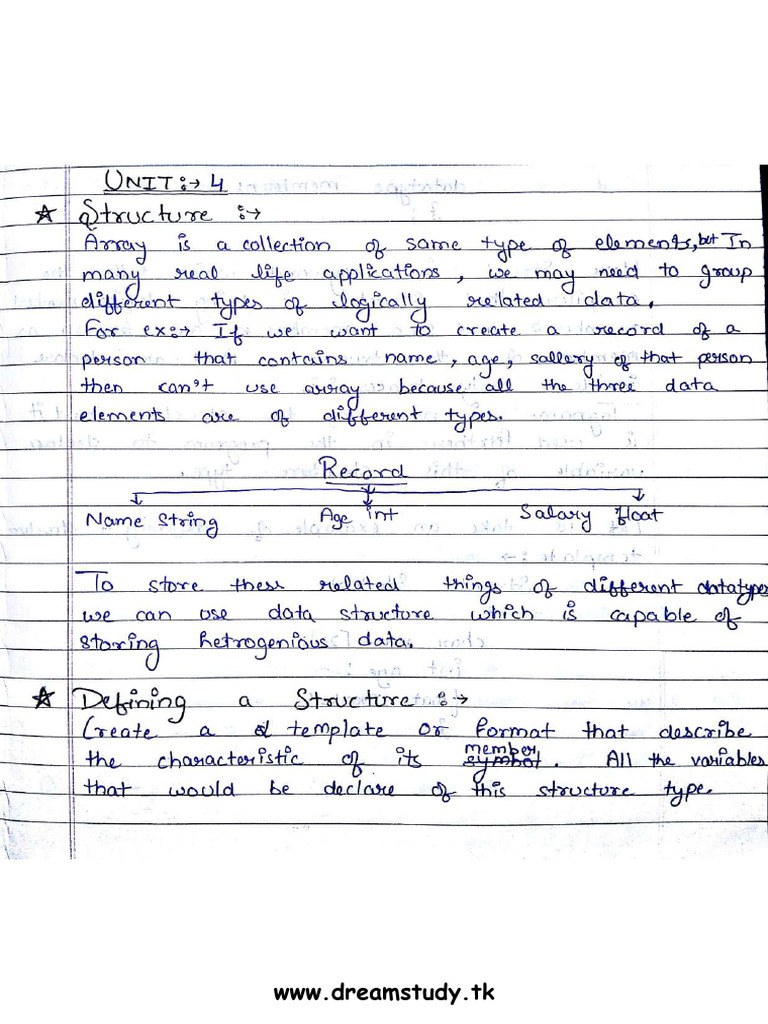 UNIT:→ 4
☆ Structure :→
Array is a collection of same type of elements, but In
many real life applications, we may need to group
different types of logically related data.
For ex:→ If we want to create a record of a
person that contains name, age, sallery of that person
then can't use array because all the three data
elements are of different types.
Record
Name String Age int Salary float
To store thess related things of different datatypes
we can use data structure which is capable of
storing hetrogenious data.
☆ Defining a Structure :→
Create a template or format that describe
the characteristic of its member symbol. All the variables
that would be declare of this structure type.
www.dreamstudy.tk